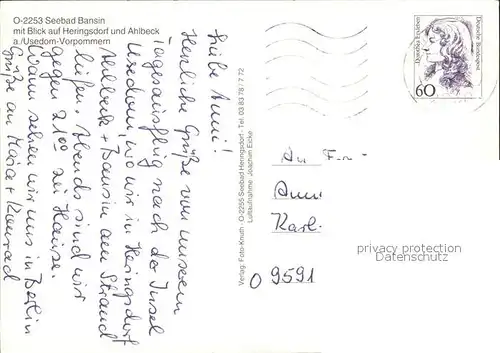 O-2253 Seebad Bansin
mit Blick auf Heringsdorf und Ahlbeck
a./Usedom-Vorpommern
Liebe Anni!
Herzliche Grüße von unserem
Tagesausflug nach der Insel
Usedom, wo wir in Heringsdorf
Ahlbeck + Bansin am Strand
liefen. Abends sind wir
gegen 21 00 zu Hause.
Wann sehen wir uns in Berlin
Grüße an Maria + Konrad
Verlag: Foto-Knuth · O-2255 Seebad Heringsdorf · Tel. 03 83 78 / 7 72
Luftaufnahme: Joachim Eicke
Dorothea Erxleben
Deutsche Bundespost
60
An Fr
Anni
Karl
O 9591
privacy protection
Datenschutz